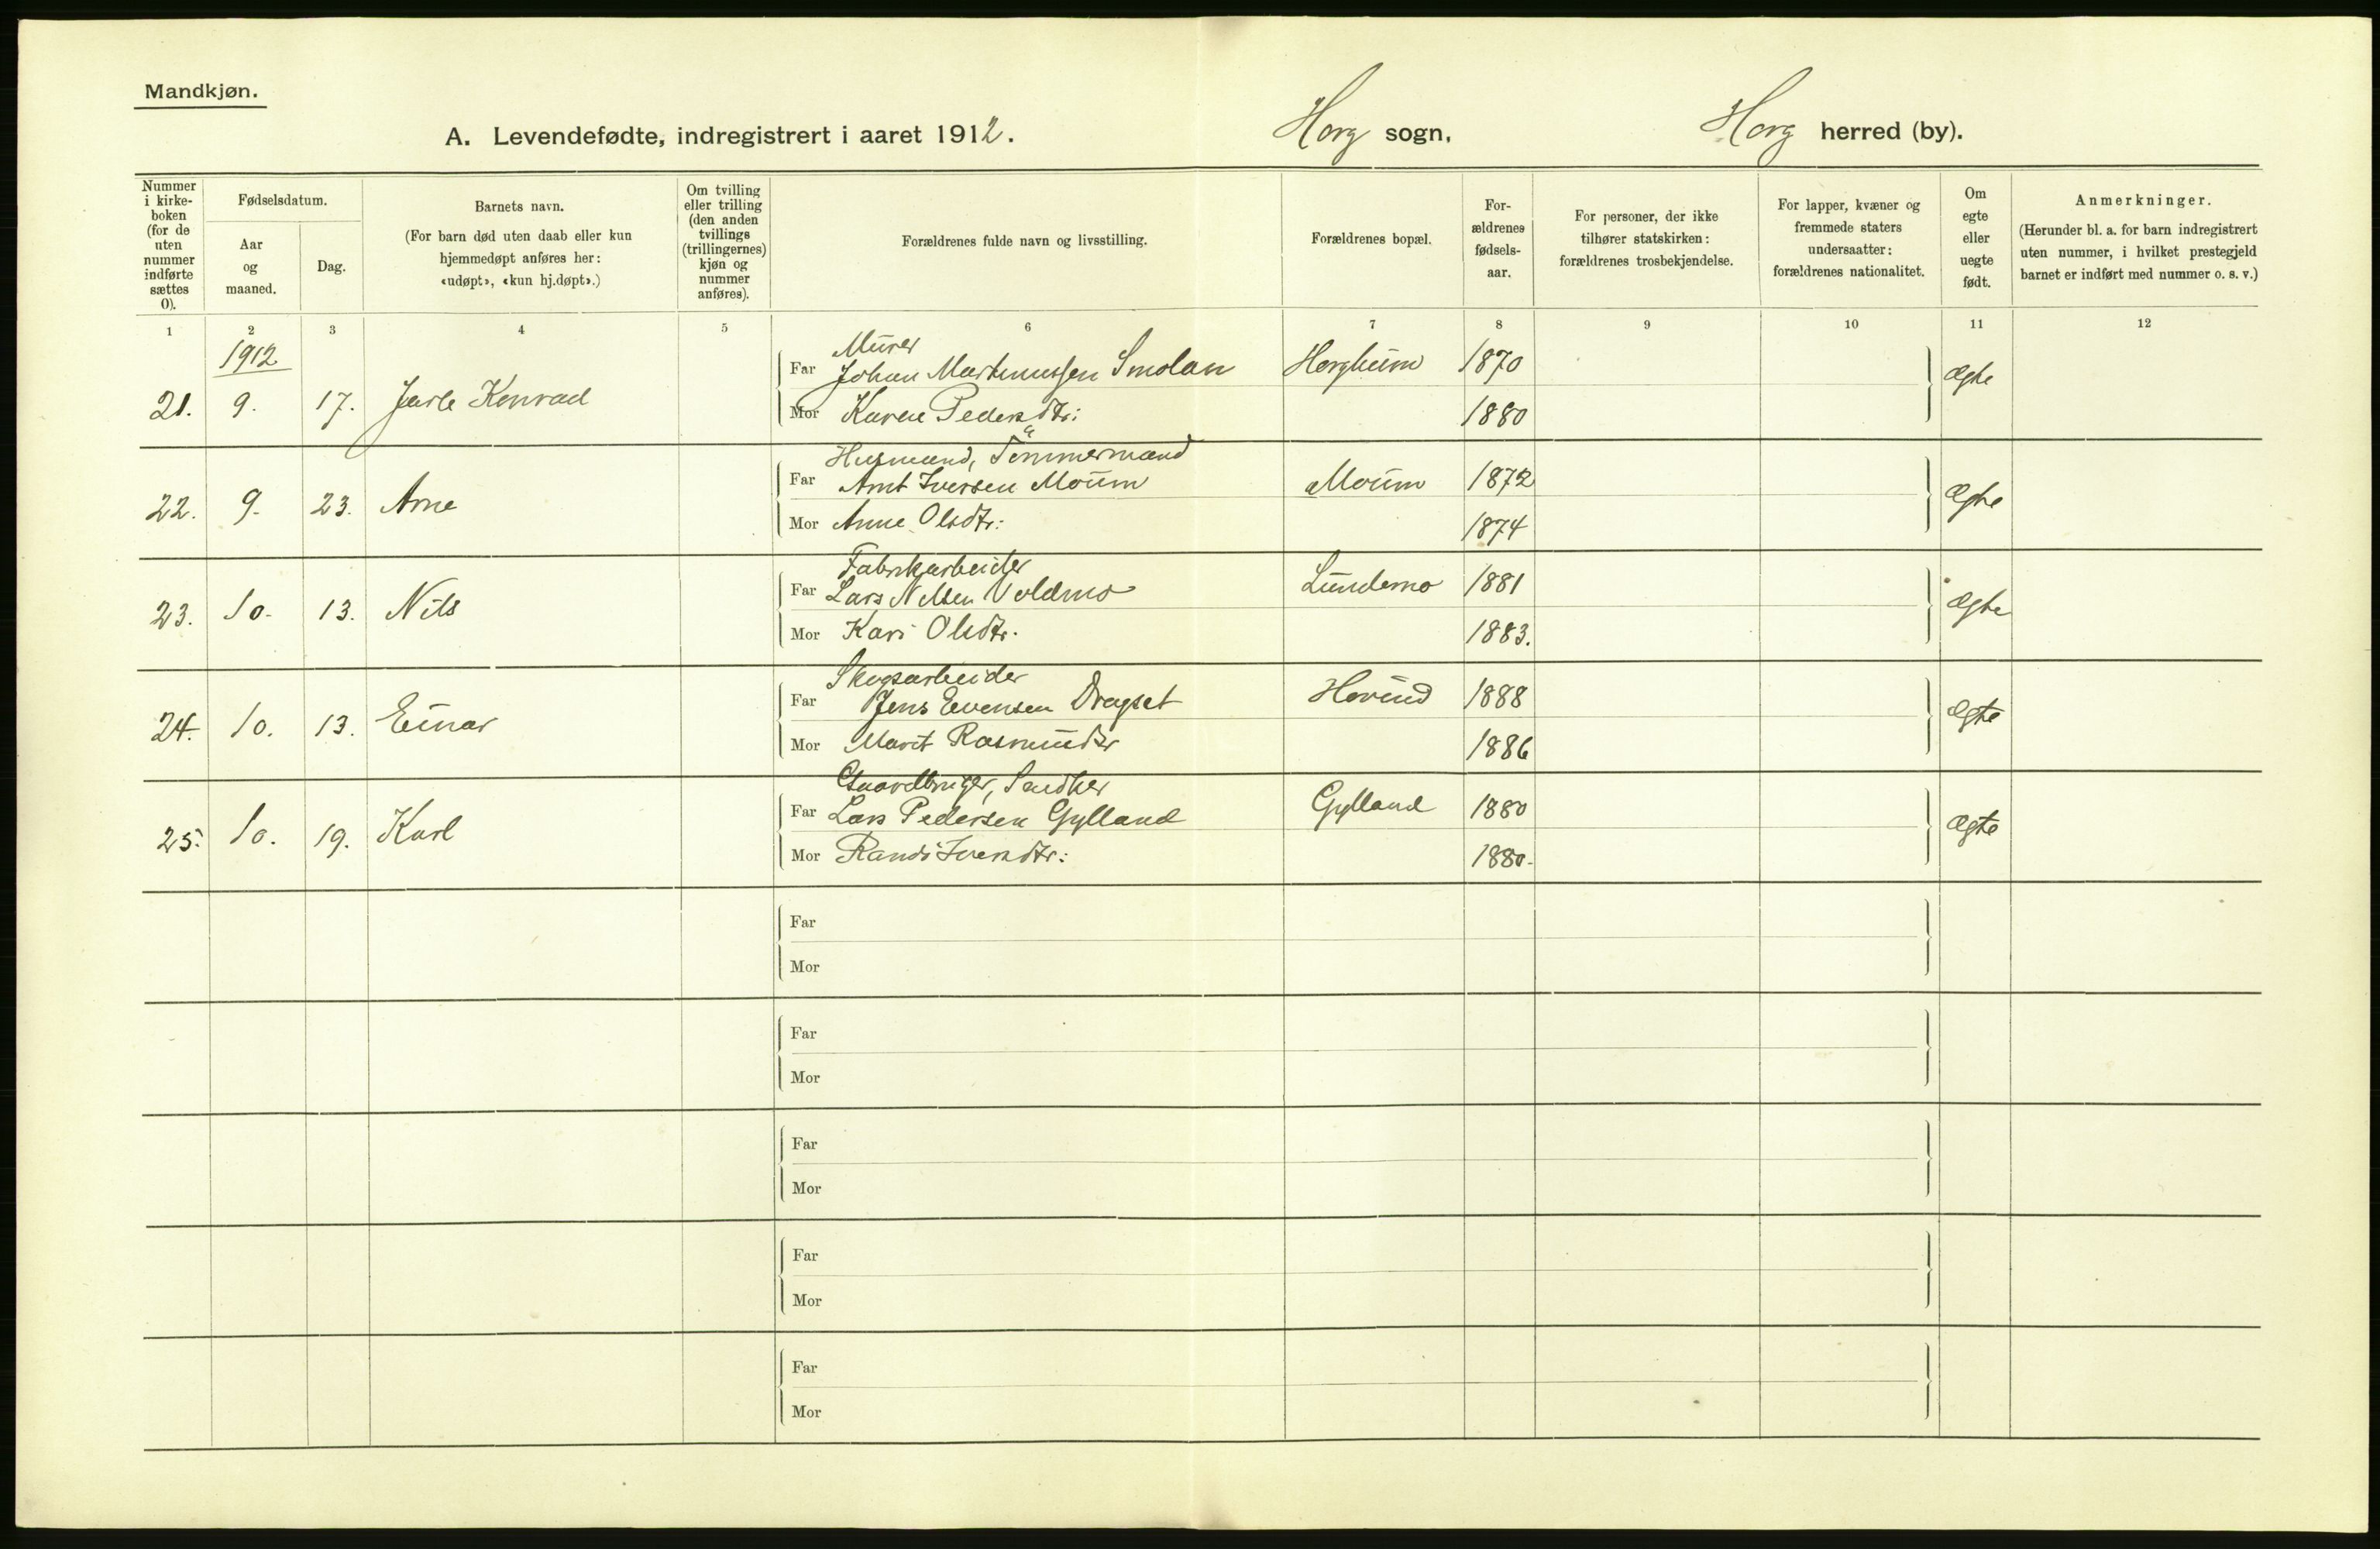 Mandkjøn.
A. Levendefødte, indregistrert i aaret 1912.
Horg sogn,
Horg herred (by).
Nummer
i kirke-
boken
(for de
uten
nummer
indførte
sættes
0).
Fødselsdatum.
Aar
og
maaned.
Dag.
Barnets navn.
(For barn død uten daab eller kun
hjemmedøpt anføres her:
«udøpt», «kun hj.døpt».)
Om tvilling
eller trilling
(den anden
tvillings
(trillingernes)
kjøn og
nummer
anføres).
Forældrenes fulde navn og livsstilling.
Forældrenes bopæl.
For-
ældrenes
fødsels-
aar.
For personer, der ikke
tilhører statskirken:
forældrenes trosbekjendelse.
For lapper, kvæner og
fremmede staters
undersaatter:
forældrenes nationalitet.
Om
egte
eller
uegte
født.
Anmerkninger.
(Herunder bl. a. for barn indregistrert
uten nummer, i hvilket prestegjeld
barnet er indført med nummer o. s. v.)
1 2 3 4 5 6 7 8 9 10 11 12
1912
21. 9. 17. Jarle Konrad
Murer
Far Johan Martinussen Smolan Horgheim 1870 Ægte
Mor Karen Pedersdtr: 1880
22. 9. 23. Arne
Husmand, Tømmermand
Far Arnt Iversen Moum Moum 1872 Ægte
Mor Anne Olsdtr: 1874
23. 10. 13. Nils
Fabrikarbeider
Far Lars Nilsen Voldmo Lundemo 1881 Ægte
Mor Kari Olsdtr. 1883.
24. 10. 13. Einar
Skogsarbeider
Far Jens Evensen Dragset Hovind 1888 Ægte
Mor Marit Rasmusdtr 1886
25. 10. 19. Karl
Gaardbruger,
Far Lars Pedersen Gylland Gylland 1880 Ægte
Mor Randi Iversdtr: 1880.
Far
Mor
Far
Mor
Far
Mor
Far
Mor
Far
Mor